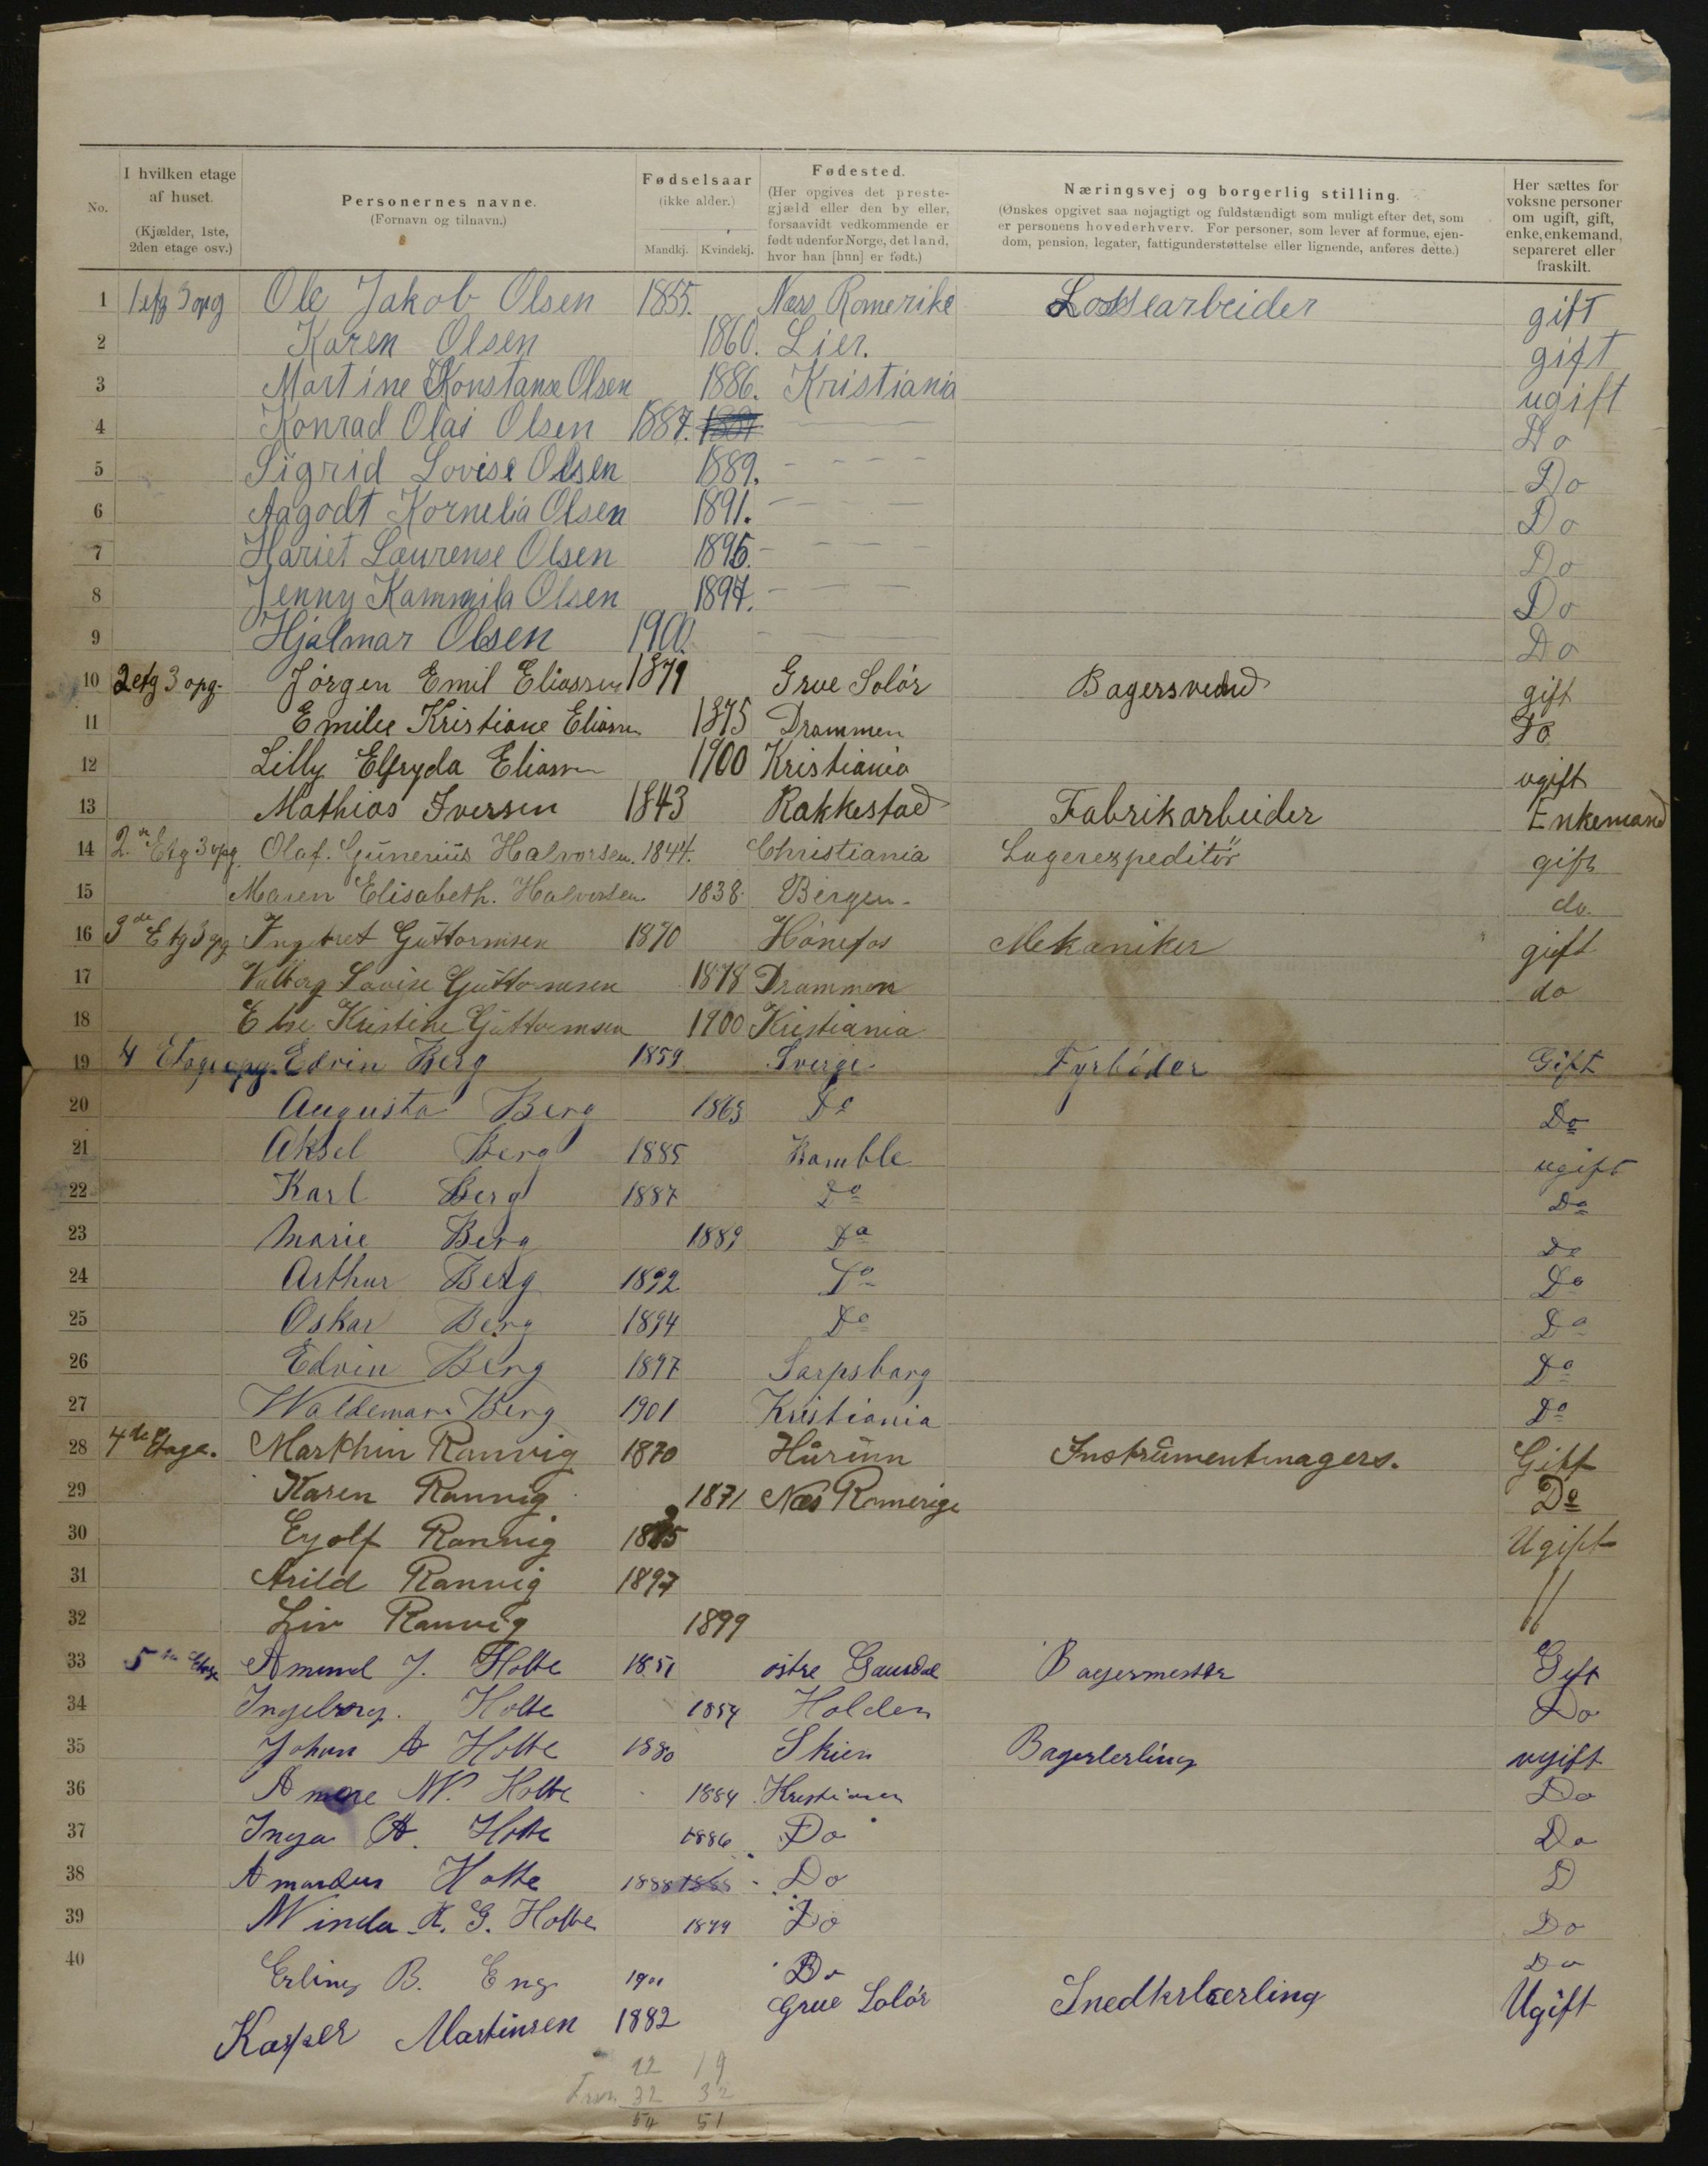 No.
I hvilken etage af huset. (Kjælder, 1ste, 2den etage osv.)
Personernes navne. (Fornavn og tilnavn.)
Fødselsaar (ikke alder.) Mandkj. Kvindekj.
Fødested. (Her opgives det prestegjæld eller den by eller, forsaavidt vedkommende er født udenfor Norge, det land, hvor han [hun] er født.)
Næringsvej og borgerlig stilling. (Ønskes opgivet saa nøjagtigt og fuldstændigt som muligt efter det, som er personens hovederhverv. For personer, som lever af formue, ejendom, pension, legater, fattigunderstøttelse eller lignende, anføres dette.)
Her sættes for voksne personer om ugift, gift, enke, enkemand, separeret eller fraskilt.
1 1 etg 3 opg Ole Jakob Olsen 1855. Næss Romerike Lossearbeider gift
2 Karen Olsen 1860. Lier. gift
3 Martine Konstanse Olsen 1886. Kristiania ugift
4 Konrad Olai Olsen 1887. — — Do
5 Sigrid Lovise Olsen 1889. - - - - Do
6 Aagodt Kornelia Olsen 1891. — — — Do
7 Hariet Laurense Olsen 1895. - - - - Do
8 Jenny Kammila Olsen 1897. - — — — Do
9 Hjalmar Olsen 1900. - — — Do
10 2 etg 3 opg. Jörgen Emil Eliassen 1879 Grue Solör Bagersvend gift
11 Emilie Kristiane Eliassen 1875 Drammen Do
12 Lilly Elfryda Eliassen 1900 Kristiania ugift
13 Mathias Iversen 1843 Rakkestad Fabrikarbeider Enkemand
14 2. Etg 3 opg. Olaf. Gunerius Halvorsen. 1844. Christiania Lagerexpeditör gift
15 Maren Elisabeth. Halvorsen 1838. Bergen. do.
16 3de Etg 3 opg Ingebret Guttormsen 1870 Hönefos Mekaniker gift
17 Valborg Lovise Guttormsen 1878 Drammen do
18 Else Kristine Guttormsen 1900 Kristiania
19 4 Etage opg. Edvin Berg 1859 Sverge Fyrböder Gift
20 Augusta Berg 1863 Do Do
21 Aksel Berg 1885 Bamble ugift
22 Karl Berg 1887 Do Do
23 Marie Berg 1889 Do Do
24 Arthur Berg 1892 Do Do
25 Oskar Berg 1894 Do Do
26 Edvin Berg 1897 Sarpsborg Do
27 Waldemar Berg 1901 Kristiania Do
28 4de Etage. Marthin Rannvig 1870 Hurum Instrumentmagers. Gift
29 Karen Rannvig 1871 Næs Romerige Do
30 Eyolf Rannvig Ugift
31 Arild Rannvig 1897 //
32 Liv Rannvig 1899
33 5 Etage Amund J. Holte 1851 östre Gausdal Bagermester Gift
34 Ingeborg. Holte 1854 Holden Do
35 Johan A Holte 1880 Skien Bagerlerling ugift
36 N. Holte 1884 Kristiania Do
37 Inga A. Holte 1886 Do Do
38 Amandus Holte 1888 Do D
39 K. G. Holte Do Do
40 Erling B. Eng 1901 Do Do
Kasper Martinsen 1882 Grue Solör Snedkerlærling Ugift
22 19
32 32
54 51